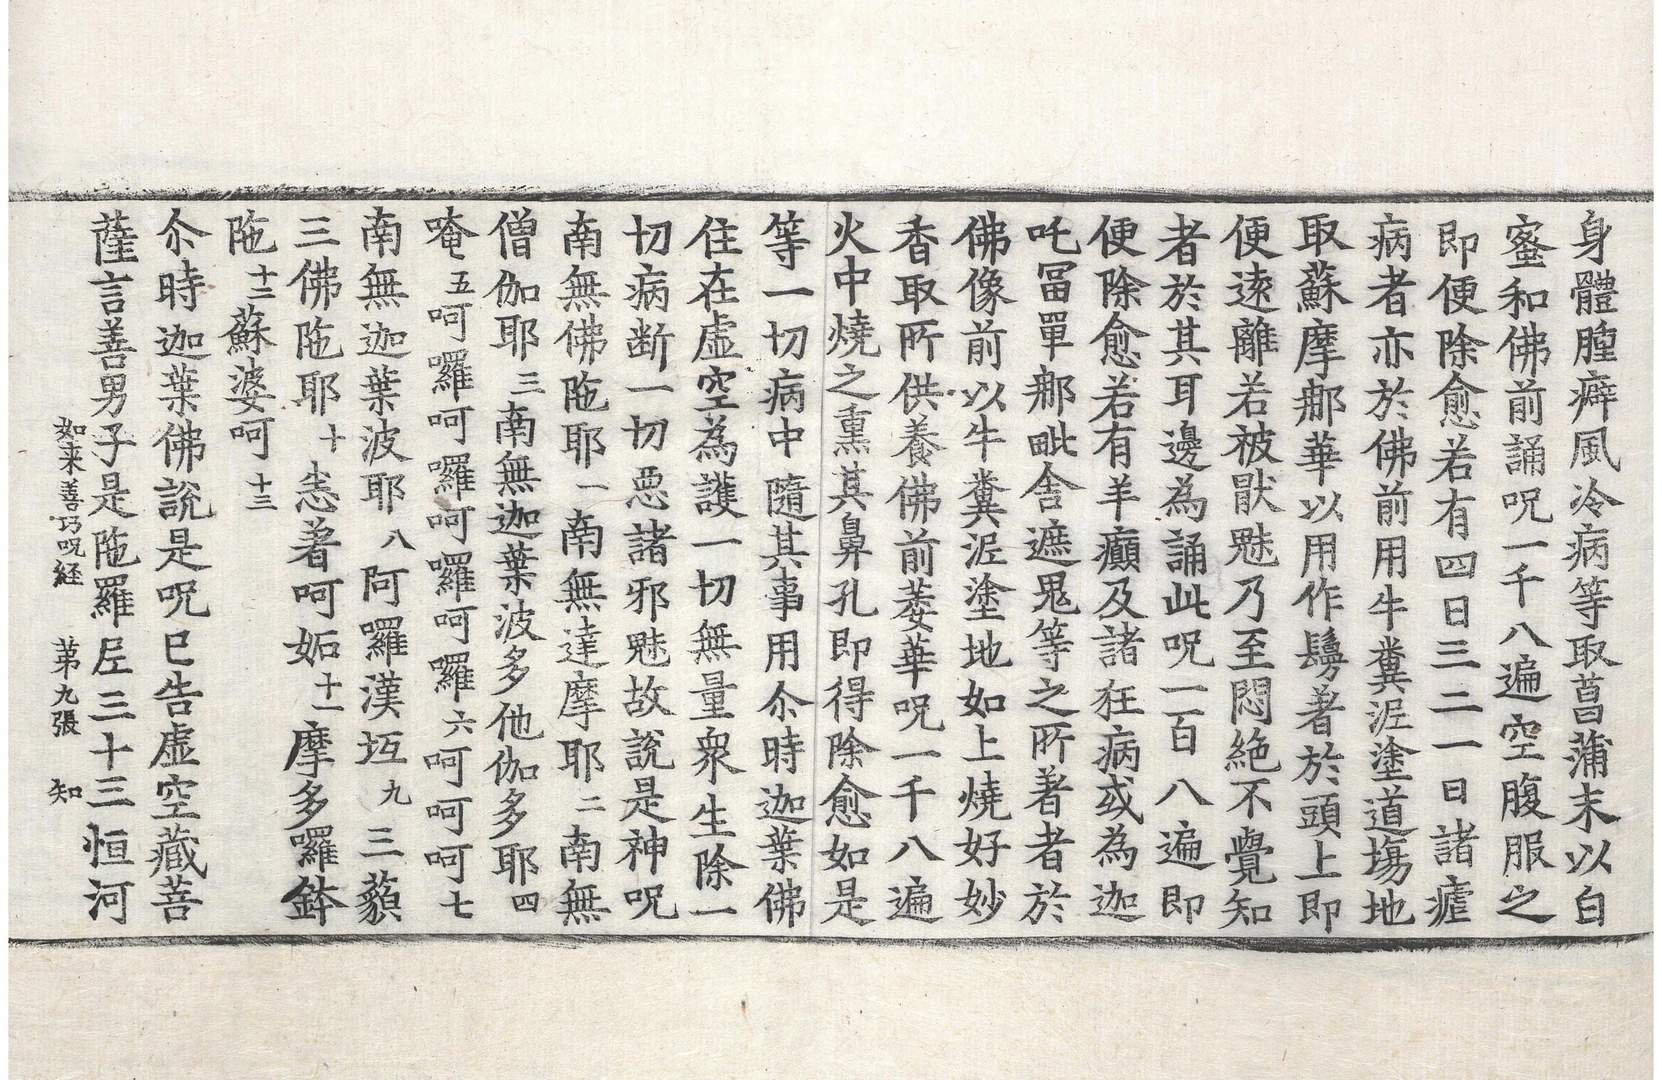 身體腫癖風冷病等取菖蒲末以白
蜜和佛前誦呪一千八遍空腹服之
即便除愈若有四日三二一日諸瘧
病者亦於佛前用牛糞泥塗道場地
取蘇摩那華以用作鬘著於頭上即
便遠離若被猒魅乃至悶絶不覺知
者於其耳邊為誦此呪一百八遍即
便除愈若有羊癲及諸狂病或為迦
吒冨單那毗舍遮鬼等之所著者於
佛像前以牛糞泥塗地如上燒好妙
香取所供養佛前萎華呪一千八遍
火中燒之熏其鼻孔即得除愈如是
等一切病中隨其事用尒時迦葉佛
住在虛空為護一切無量衆生除一
切病断一切惡諸邪魅故說是神呪
南無佛陁耶一南無達摩耶二南無
僧伽耶三南無迦葉波多他伽多耶四
唵五呵囉呵囉呵囉呵囉六呵呵呵七
南無迦葉波耶八阿囉漢坘九三藐
三佛陁耶十恚著呵妬十一摩多囉鉢
陁十二蘇婆呵十三
尒時迦葉佛說是呪巳告虛空藏菩
薩言善男子是陁羅尼三十三恒河
如来善巧呪経 苐九張 知